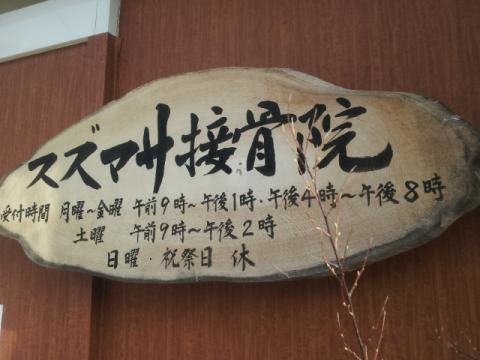 スズマサ接骨院
受付時間 月曜~金曜 午前9時~午後1時・午後4時~午後8時
土曜 午前9時~午後2時
日曜・祝祭日 休